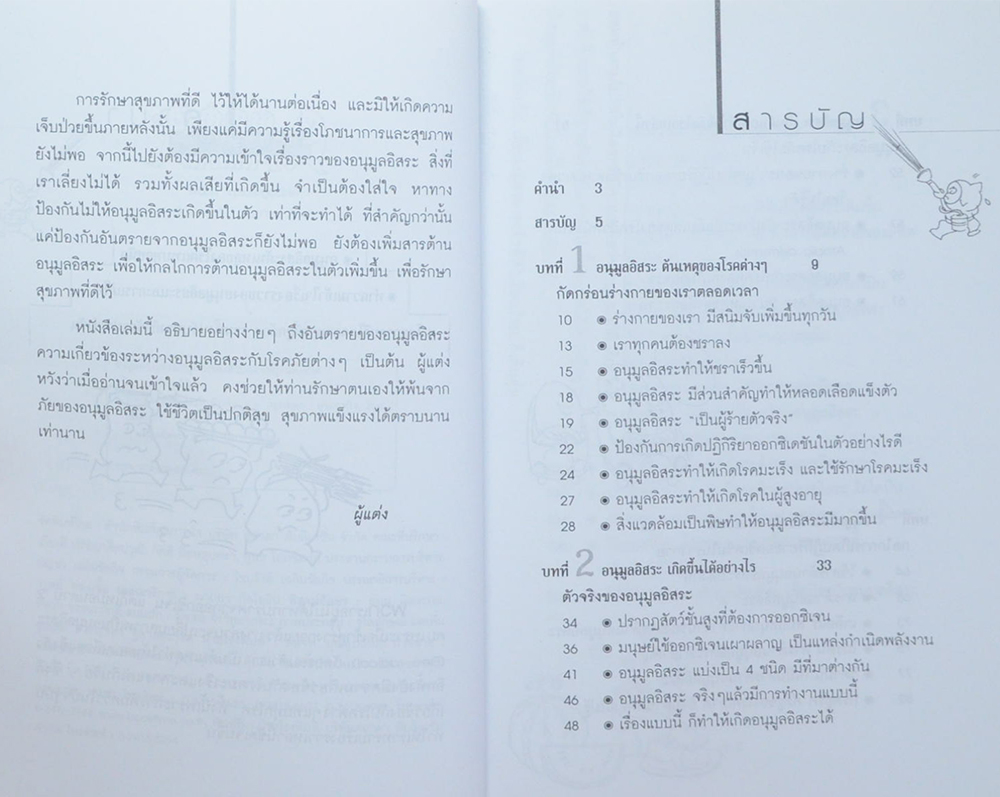 การรักษาสุขภาพที่ดี ไว้ให้ได้นานต่อเนื่อง และมิให้เกิดความ
เจ็บป่วยขึ้นภายหลังนั้น เพียงแค่มีความรู้เรื่องโภชนาการและสุขภาพ
ยังไม่พอ จากนี้ไปยังต้องมีความเข้าใจเรื่องราวของอนุมูลอิสระ สิ่งที่
เราเลี่ยงไม่ได้ รวมทั้งผลเสียที่เกิดขึ้น จำเป็นต้องใส่ใจ หาทาง
ป้องกันไม่ให้อนุมูลอิสระเกิดขึ้นในตัว เท่าที่จะทำได้ ที่สำคัญกว่านั้น
แค่ป้องกันอันตรายจากอนุมูลอิสระก็ยังไม่พอ ยังต้องเพิ่มสารต้าน
อนุมูลอิสระ เพื่อให้กลไกการต้านอนุมูลอิสระในตัวเพิ่มขึ้น เพื่อรักษา
สุขภาพที่ดีไว้
หนังสือเล่มนี้ อธิบายอย่างง่ายๆ ถึงอันตรายของอนุมูลอิสระ
ความเกี่ยวข้องระหว่างอนุมูลอิสระกับโรคภัยต่างๆ เป็นต้น ผู้แต่ง
หวังว่าเมื่ออ่านจนเข้าใจแล้ว คงช่วยให้ท่านรักษาตนเองให้พ้นจาก
ภัยของอนุมูลอิสระ ใช้ชีวิตเป็นปกติสุข สุขภาพแข็งแรงได้ตราบนาน
เท่านาน
ผู้แต่ง
สารบัญ
คำนำ 3
สารบัญ 5
บทที่ 1 อนุมูลอิสระ ต้นเหตุของโรคต่างๆ 9
กัดกร่อนร่างกายของเราตลอดเวลา
10 ◉ ร่างกายของเรา มีสนิมจับเพิ่มขึ้นทุกวัน
13 ◉ เราทุกคนต้องชราลง
15 ◉ อนุมูลอิสระทำให้ชราเร็วขึ้น
18 ◉ อนุมูลอิสระ มีส่วนสำคัญทำให้หลอดเลือดแข็งตัว
19 ◉ อนุมูลอิสระ "เป็นผู้ร้ายตัวจริง"
22 ◉ ป้องกันการเกิดปฏิกิริยาออกซิเดชันในตัวอย่างไรดี
24 ◉ อนุมูลอิสระทำให้เกิดโรคมะเร็ง และใช้รักษาโรคมะเร็ง
27 ◉ อนุมูลอิสระทำให้เกิดโรคในผู้สูงอายุ
28 ◉ สิ่งแวดล้อมเป็นพิษทำให้อนุมูลอิสระมีมากขึ้น
บทที่ 2 อนุมูลอิสระ เกิดขึ้นได้อย่างไร 33
ตัวจริงของอนุมูลอิสระ
34 ◉ ปรากฏสัตว์ชั้นสูงที่ต้องการออกซิเจน
36 ◉ มนุษย์ใช้ออกซิเจนเผาผลาญ เป็นแหล่งกำเนิดพลังงาน
41 ◉ อนุมูลอิสระ แบ่งเป็น 4 ชนิด มีที่มาต่างกัน
46 ◉ อนุมูลอิสระ จริงๆแล้วมีการทำงานแบบนี้
48 ◉ เรื่องแบบนี้ ก็ทำให้เกิดอนุมูลอิสระได้